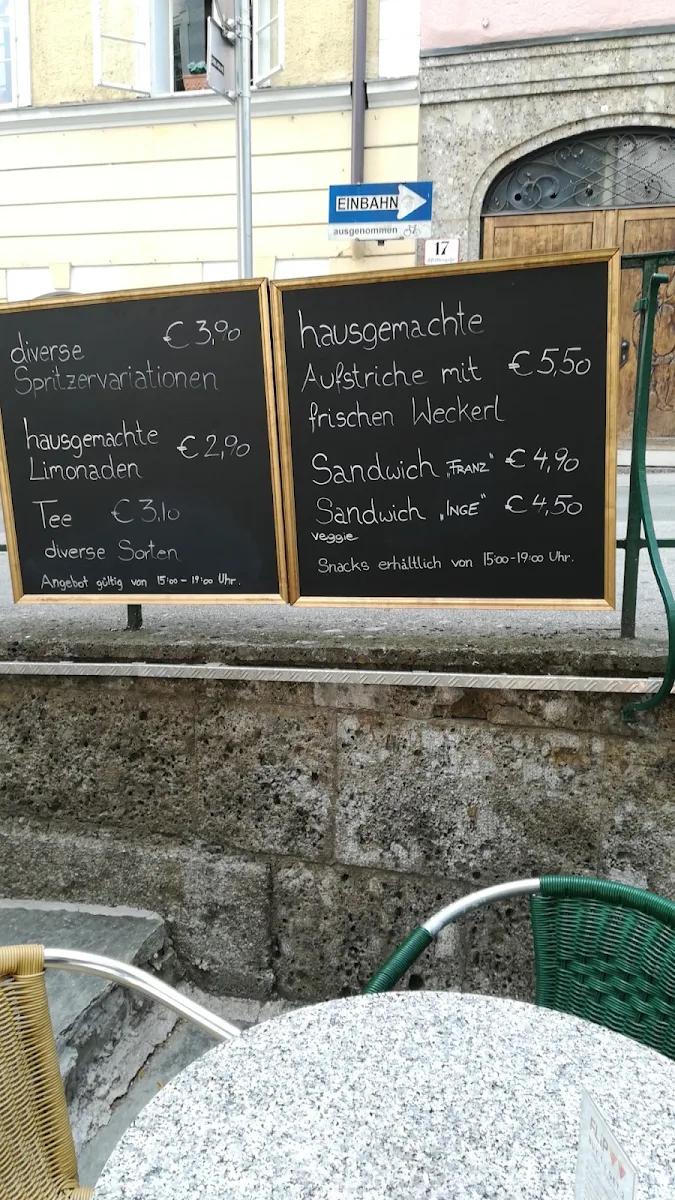 EINBAHN
ausgenommen
17
diverse € 3,90
Spritzervariationen
hausgemachte € 2,90
Limonaden
Tee € 3,10
diverse Sorten
Angebot gültig von 15:00 - 19:00 Uhr.
hausgemachte
Aufstriche mit € 5,50
frischen Weckerl
Sandwich „FRANZ" € 4,90
Sandwich „INGE" € 4,50
veggie
Snacks erhältlich von 15:00-19:00 Uhr.